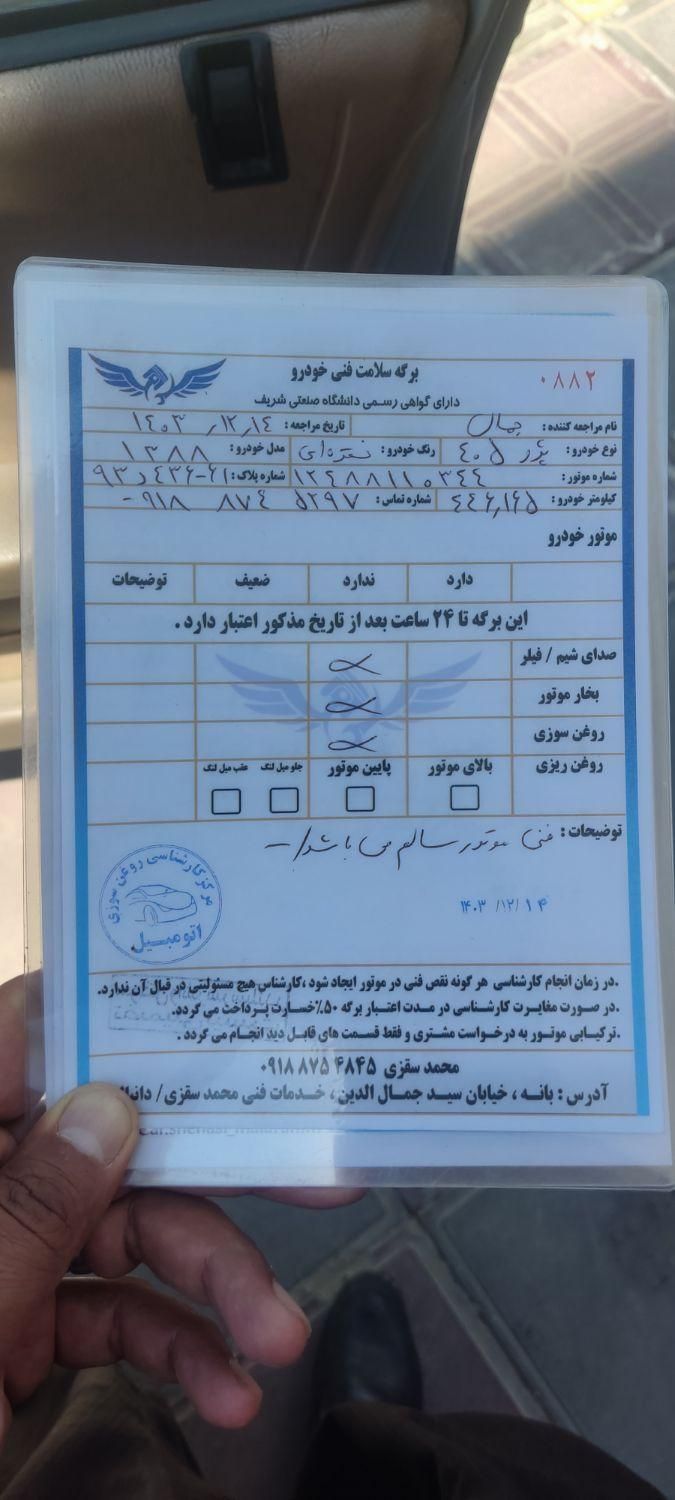 برگه سلامت فنی خودرو
۰۸۸۲
دارای گواهی رسمی دانشگاه صنعتی شریف
نام مراجعه کننده : جمال تاریخ مراجعه : ۱۴۰۳/۱۲/۱۴
نوع خودرو : پژو ۴۰۵ رنگ خودرو : نقره‌ای مدل خودرو : ۱۳۸۸
شماره موتور : ۱۲۴۸۸۱۱۰۳۴۴ شماره پلاک :
کیلومتر خودرو : ۴۴۶,۱۶۵ شماره تماس : ۰۹۱۸ ۸۷۴ ۵۲۹۷
موتور خودرو
دارد ندارد ضعیف توضیحات
این برگه تا ۲۴ ساعت بعد از تاریخ مذکور اعتبار دارد .
صدای شیم / فیلر
بخار موتور
روغن سوزی
روغن ریزی بالای موتور پایین موتور جلو میل لنگ عقب میل لنگ
توضیحات : فنی موتور سالم می باشد/-
۱۴۰۳/۱۲/۱۴
مرکز کارشناسی روغن سوزی
اتومبیل
.در زمان انجام کارشناسی هر گونه نقص فنی در موتور ایجاد شود ،کارشناس هیچ مسئولیتی در قبال آن ندارد.
.در صورت مغایرت کارشناسی در مدت اعتبار برگه ۵۰٪خسارت پرداخت می گردد.
.ترکیابی موتور به درخواست مشتری و فقط قسمت های قابل دید انجام می گردد .
محمد سقزی ۰۹۱۸۸۷۵۴۸۴۵
آدرس : بانه ، خیابان سید جمال الدین ، خدمات فنی محمد سقزی/